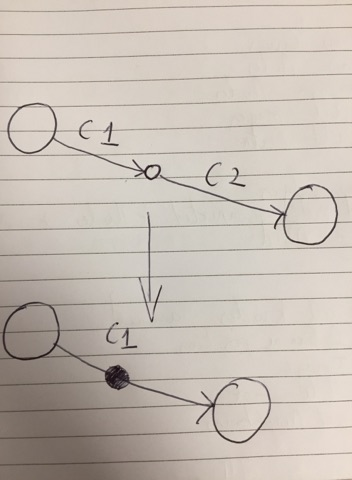 C1
C2
C1